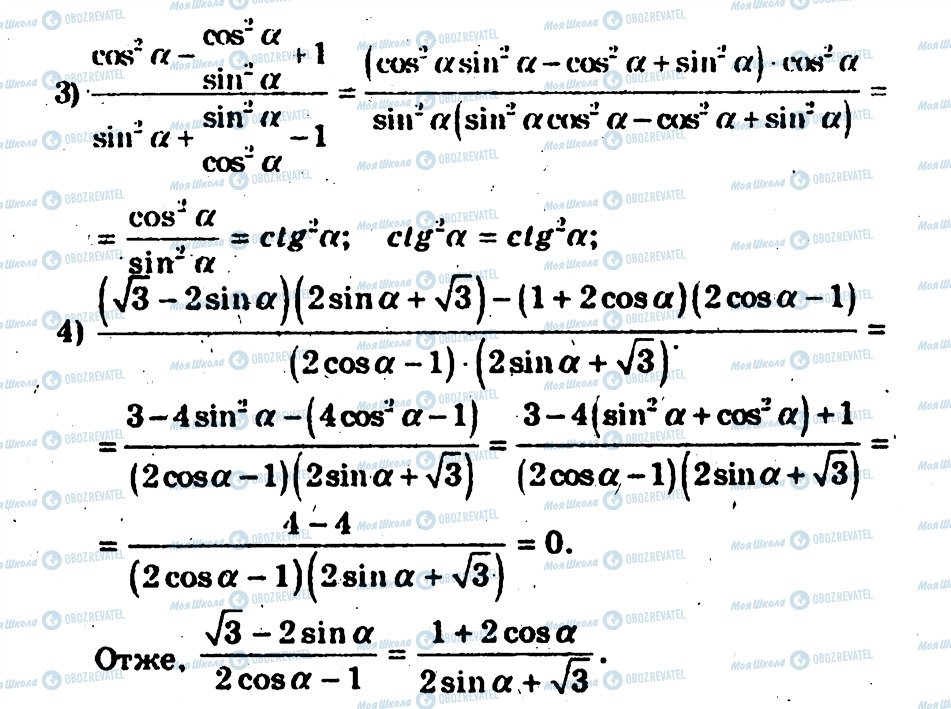 3) (cos² α − cos² α / sin² α + 1) / (sin² α + sin² α / cos² α − 1) = ((cos² α sin² α − cos² α + sin² α) · cos² α) / (sin² α (sin² α cos² α − cos² α + sin² α)) =
= cos² α / sin² α = ctg²α; ctg²α = ctg²α;
4) ((√3 − 2 sin α)(2 sin α + √3) − (1 + 2 cos α)(2 cos α − 1)) / ((2 cos α − 1) · (2 sin α + √3)) =
= (3 − 4 sin² α − (4 cos² α − 1)) / ((2 cos α − 1)(2 sin α + √3)) = (3 − 4(sin² α + cos² α) + 1) / ((2 cos α − 1)(2 sin α + √3)) =
= (4 − 4) / ((2 cos α − 1)(2 sin α + √3)) = 0.
Отже, (√3 − 2 sin α) / (2 cos α − 1) = (1 + 2 cos α) / (2 sin α + √3).
Моя Школа OBOZREVATEL